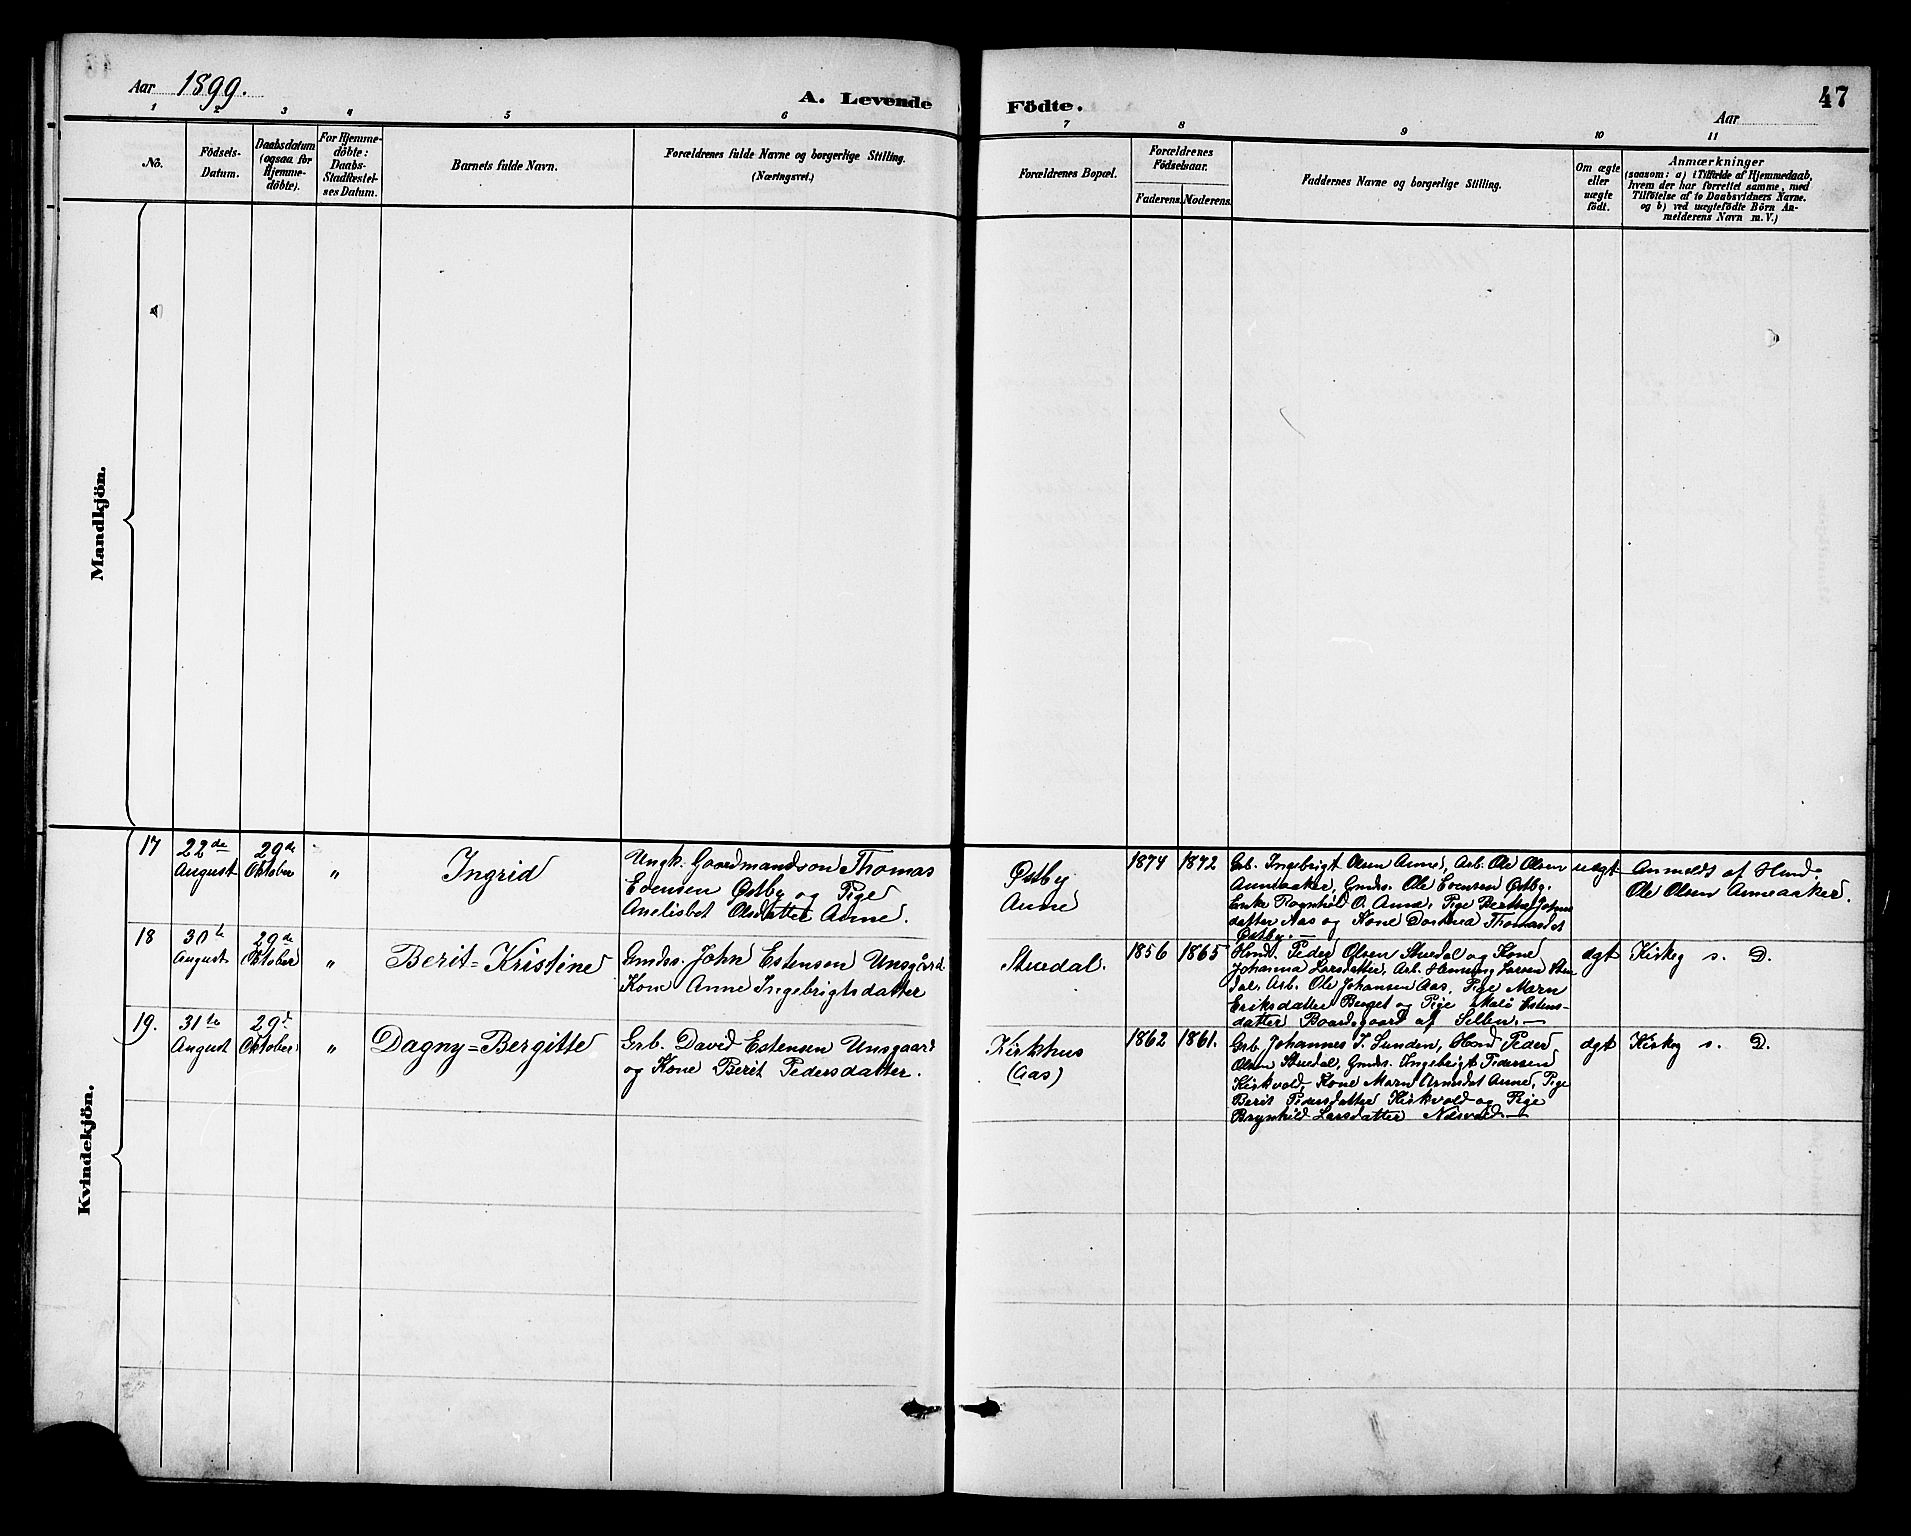 Aar 1899.
A. Levende Födte.
47
Aar
1 2 3 4 5 6 7 8 9 10 11
No.
Födsels-
Datum.
Daabsdatum
(ogsaa for
Hjemme-
döbte).
For Hjemme-
döbte:
Daabs-
Stadfæstel-
ses Datum.
Barnets fulde Navn.
Forældrenes fulde Navne og borgerlige Stilling.
(Næringsvei.)
Forældrenes Bopæl.
Forældrenes
Födselsaar.
Faderens. Moderens.
Faddernes Navne og borgerlige Stilling.
Om ægte
eller
uægte
födt.
Anmærkninger
(saasom: a) i Tilfælde af Hjemmedaab,
hvem der har forrettet samme, med
Tilföielse af to Daabsvidners Navne.
og b) ved uægtefödte Börn An-
melderens Navn m. V.)
Mandkjön.
Kvindekjön.
17
22de
August
29de
Oktober
"
Ingrid
Ungk. Gaardmandsøn Thomas
Evensen Østby og Pige
Anelisbet Olsdatter Aune.
Østby
Aune
1874 1872
Grb. Ingebrigt Olsen Aune, Arb. Ole Olsen
Auneaaker, Gmds. Ole Evensen Østby.
Enke Ragnhild O. Aune, Pige Berthe Johns
datter Aas og Kone Dorthea Thomasdt
Østby. —
uægt
Anmeldt af Husm.
Ole Olsen Auneaaker.
18
30te
August
29de
Oktober
"
Berit=Kristine
Gmdss. John Estensen Unsgård
Kone Anne Ingebrigtsdatter
Stuedal.
1856 1865
Husmd. Peder Olsen Stuedal og Kone
Johanna Larsdatter, Arb. Henning Larsen Stue
dal, Arb. Ole Johansen Aas, Pige Marn
Eriksdatter Berget og Pige Malø Estens-
datter Baardsgaard af Selbu. —
ægt
Kirkeg s. D.
19.
31te
August
29d
Oktober
"
Dagny=Bergitte
Grb. David Estensen Unsgaard
og Kone Berit Pedersdatter.
Kirkhus
(Aas)
1862 1861.
Grb. Johannes J. Lunden, Husmd Peder
Olsen Stuedal, Gmds. Ingebrigt Pedersen
Kirkvold, Kone Marn Arnesdat Aune, Pige
Berit Pedersdatter Kirkvold og Pige
Brynhild Larsdatter Næsvold. —
ægt
Kirkeg s. D.